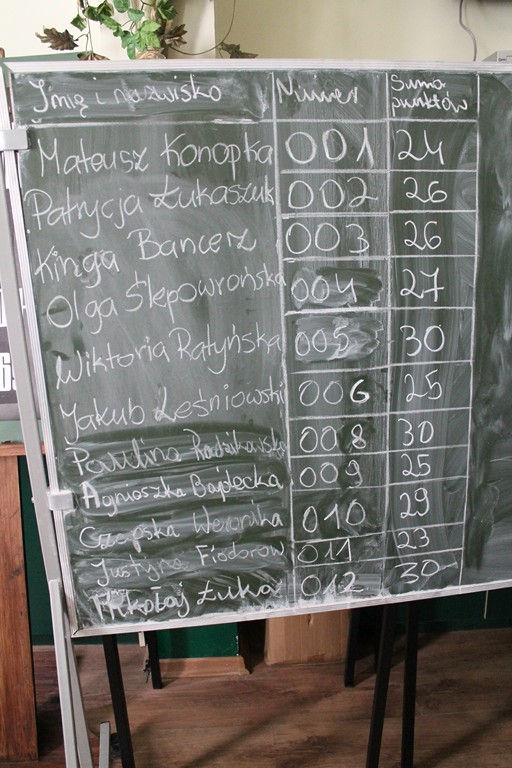 Imię i nazwisko Numer Suma punktów
Mateusz Konopka 001 24
Patrycja Łukaszuk 002 26
Kinga Bancerz 003 26
Olga Ślepowrońska 004 27
Wiktoria Ratyńska 005 30
Jakub Leśniowski 006 25
Paulina Radzikowska 008 30
Agnioszka Bajdecka 009 25
Czapska Weronika 010 29
Justyna Fiodorow 011 23
Mikołaj Łuka 012 30